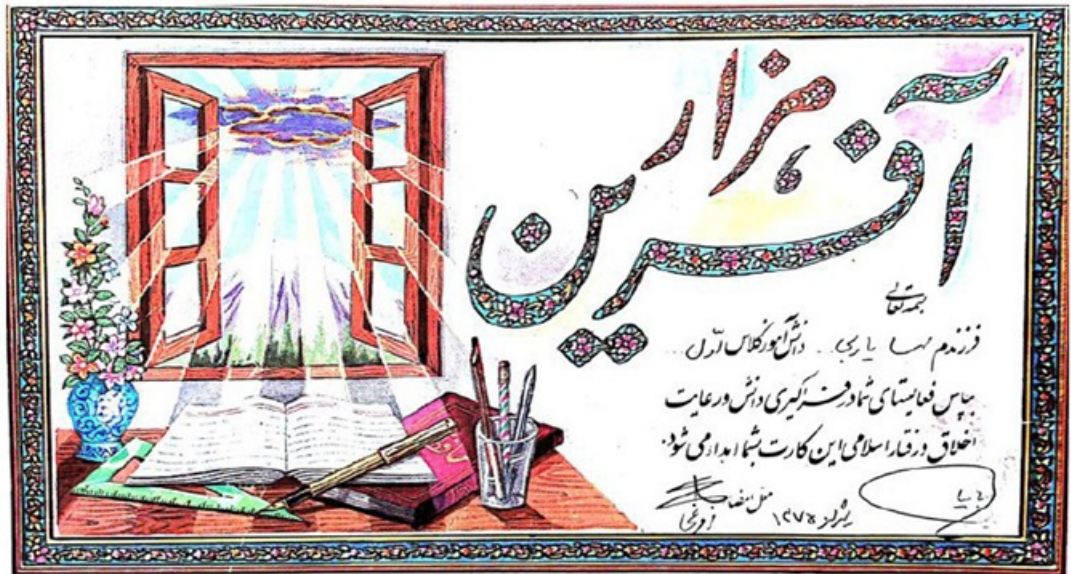 هزار
آفرین
بسمه تعالی
فرزندم ... دانش آموز کلاس اول ...
بپاس فعالیتهای شما در فراگیری دانش و رعایت
اخلاق و رفتار اسلامی این کارت بشما اهدا می شود.
محل امضاء